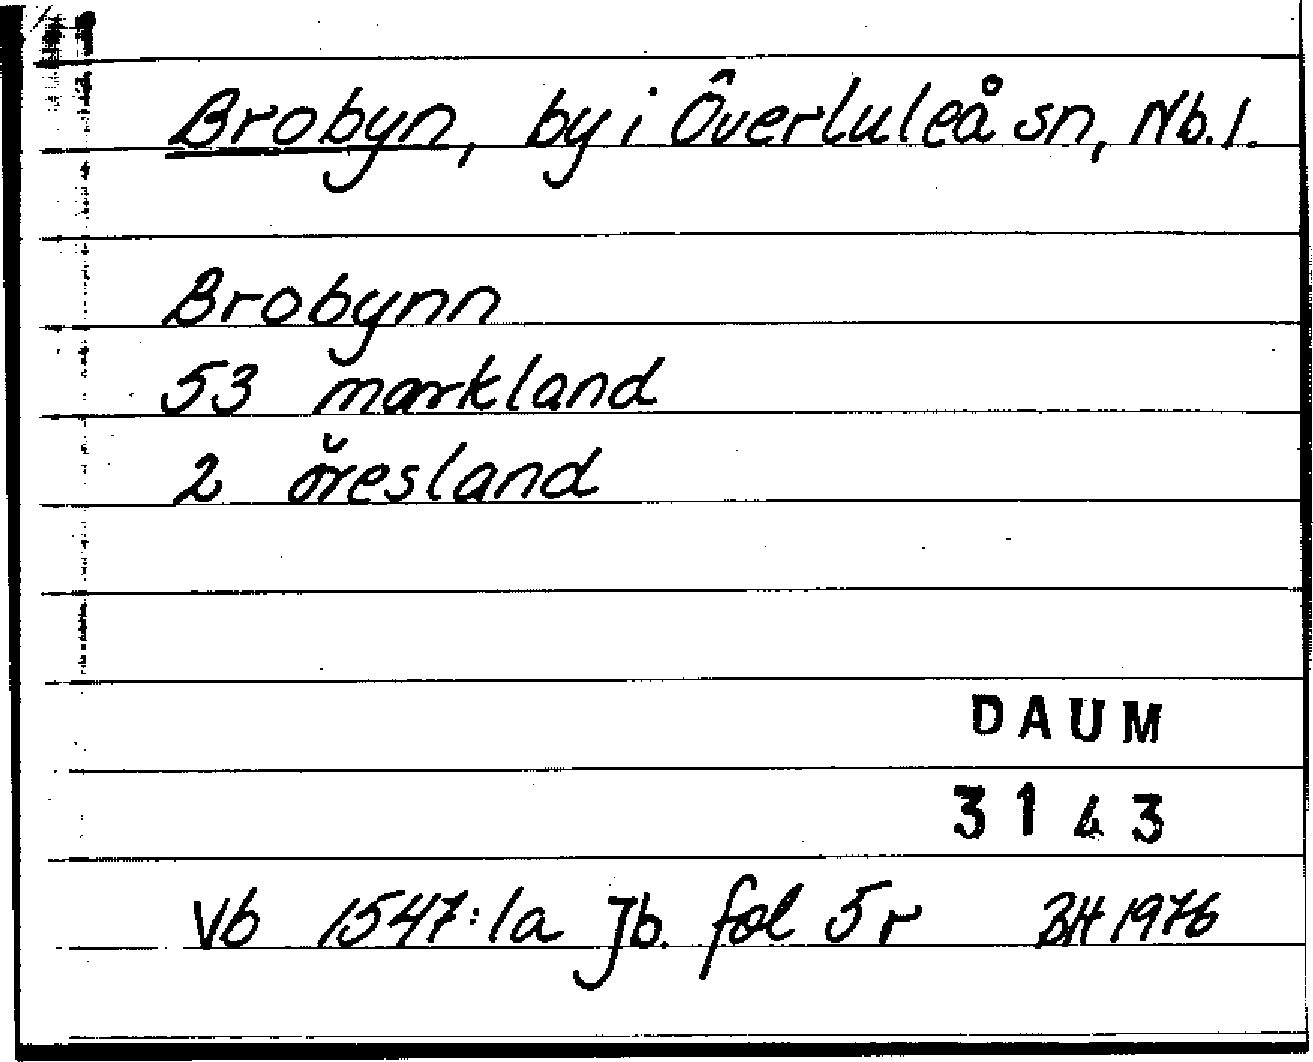 Brobyn, by i Överluleå sn, Nb.l.
Brobynn
53 markland
2 öresland
DAUM
3143
Vb 1547:1a Jb. fol 5r BH 1976